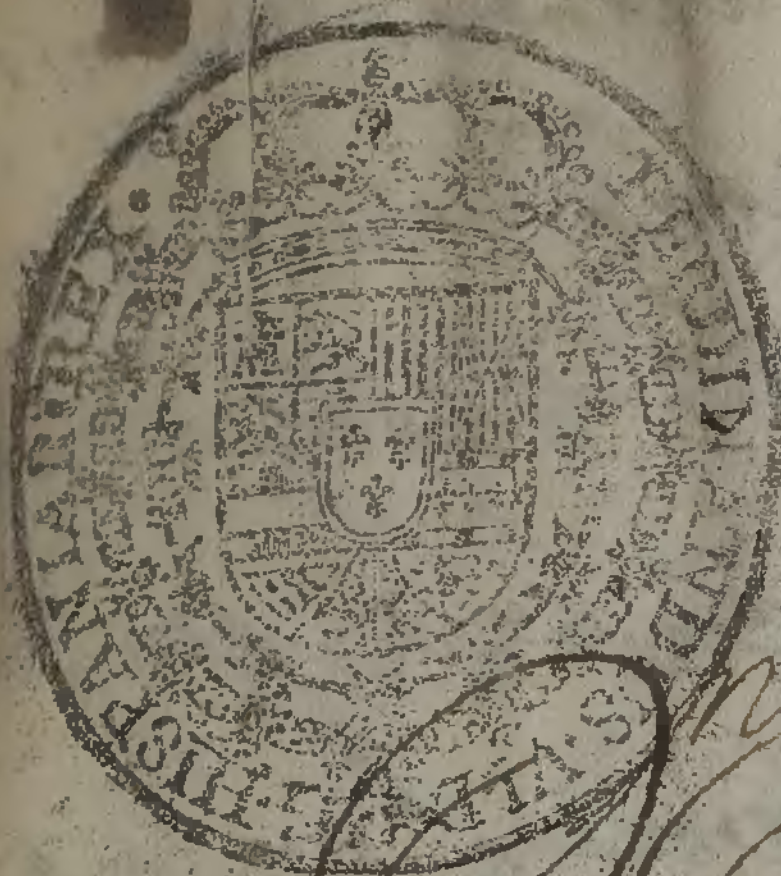 FERDINANDVS VI D G HISPANIAR REX